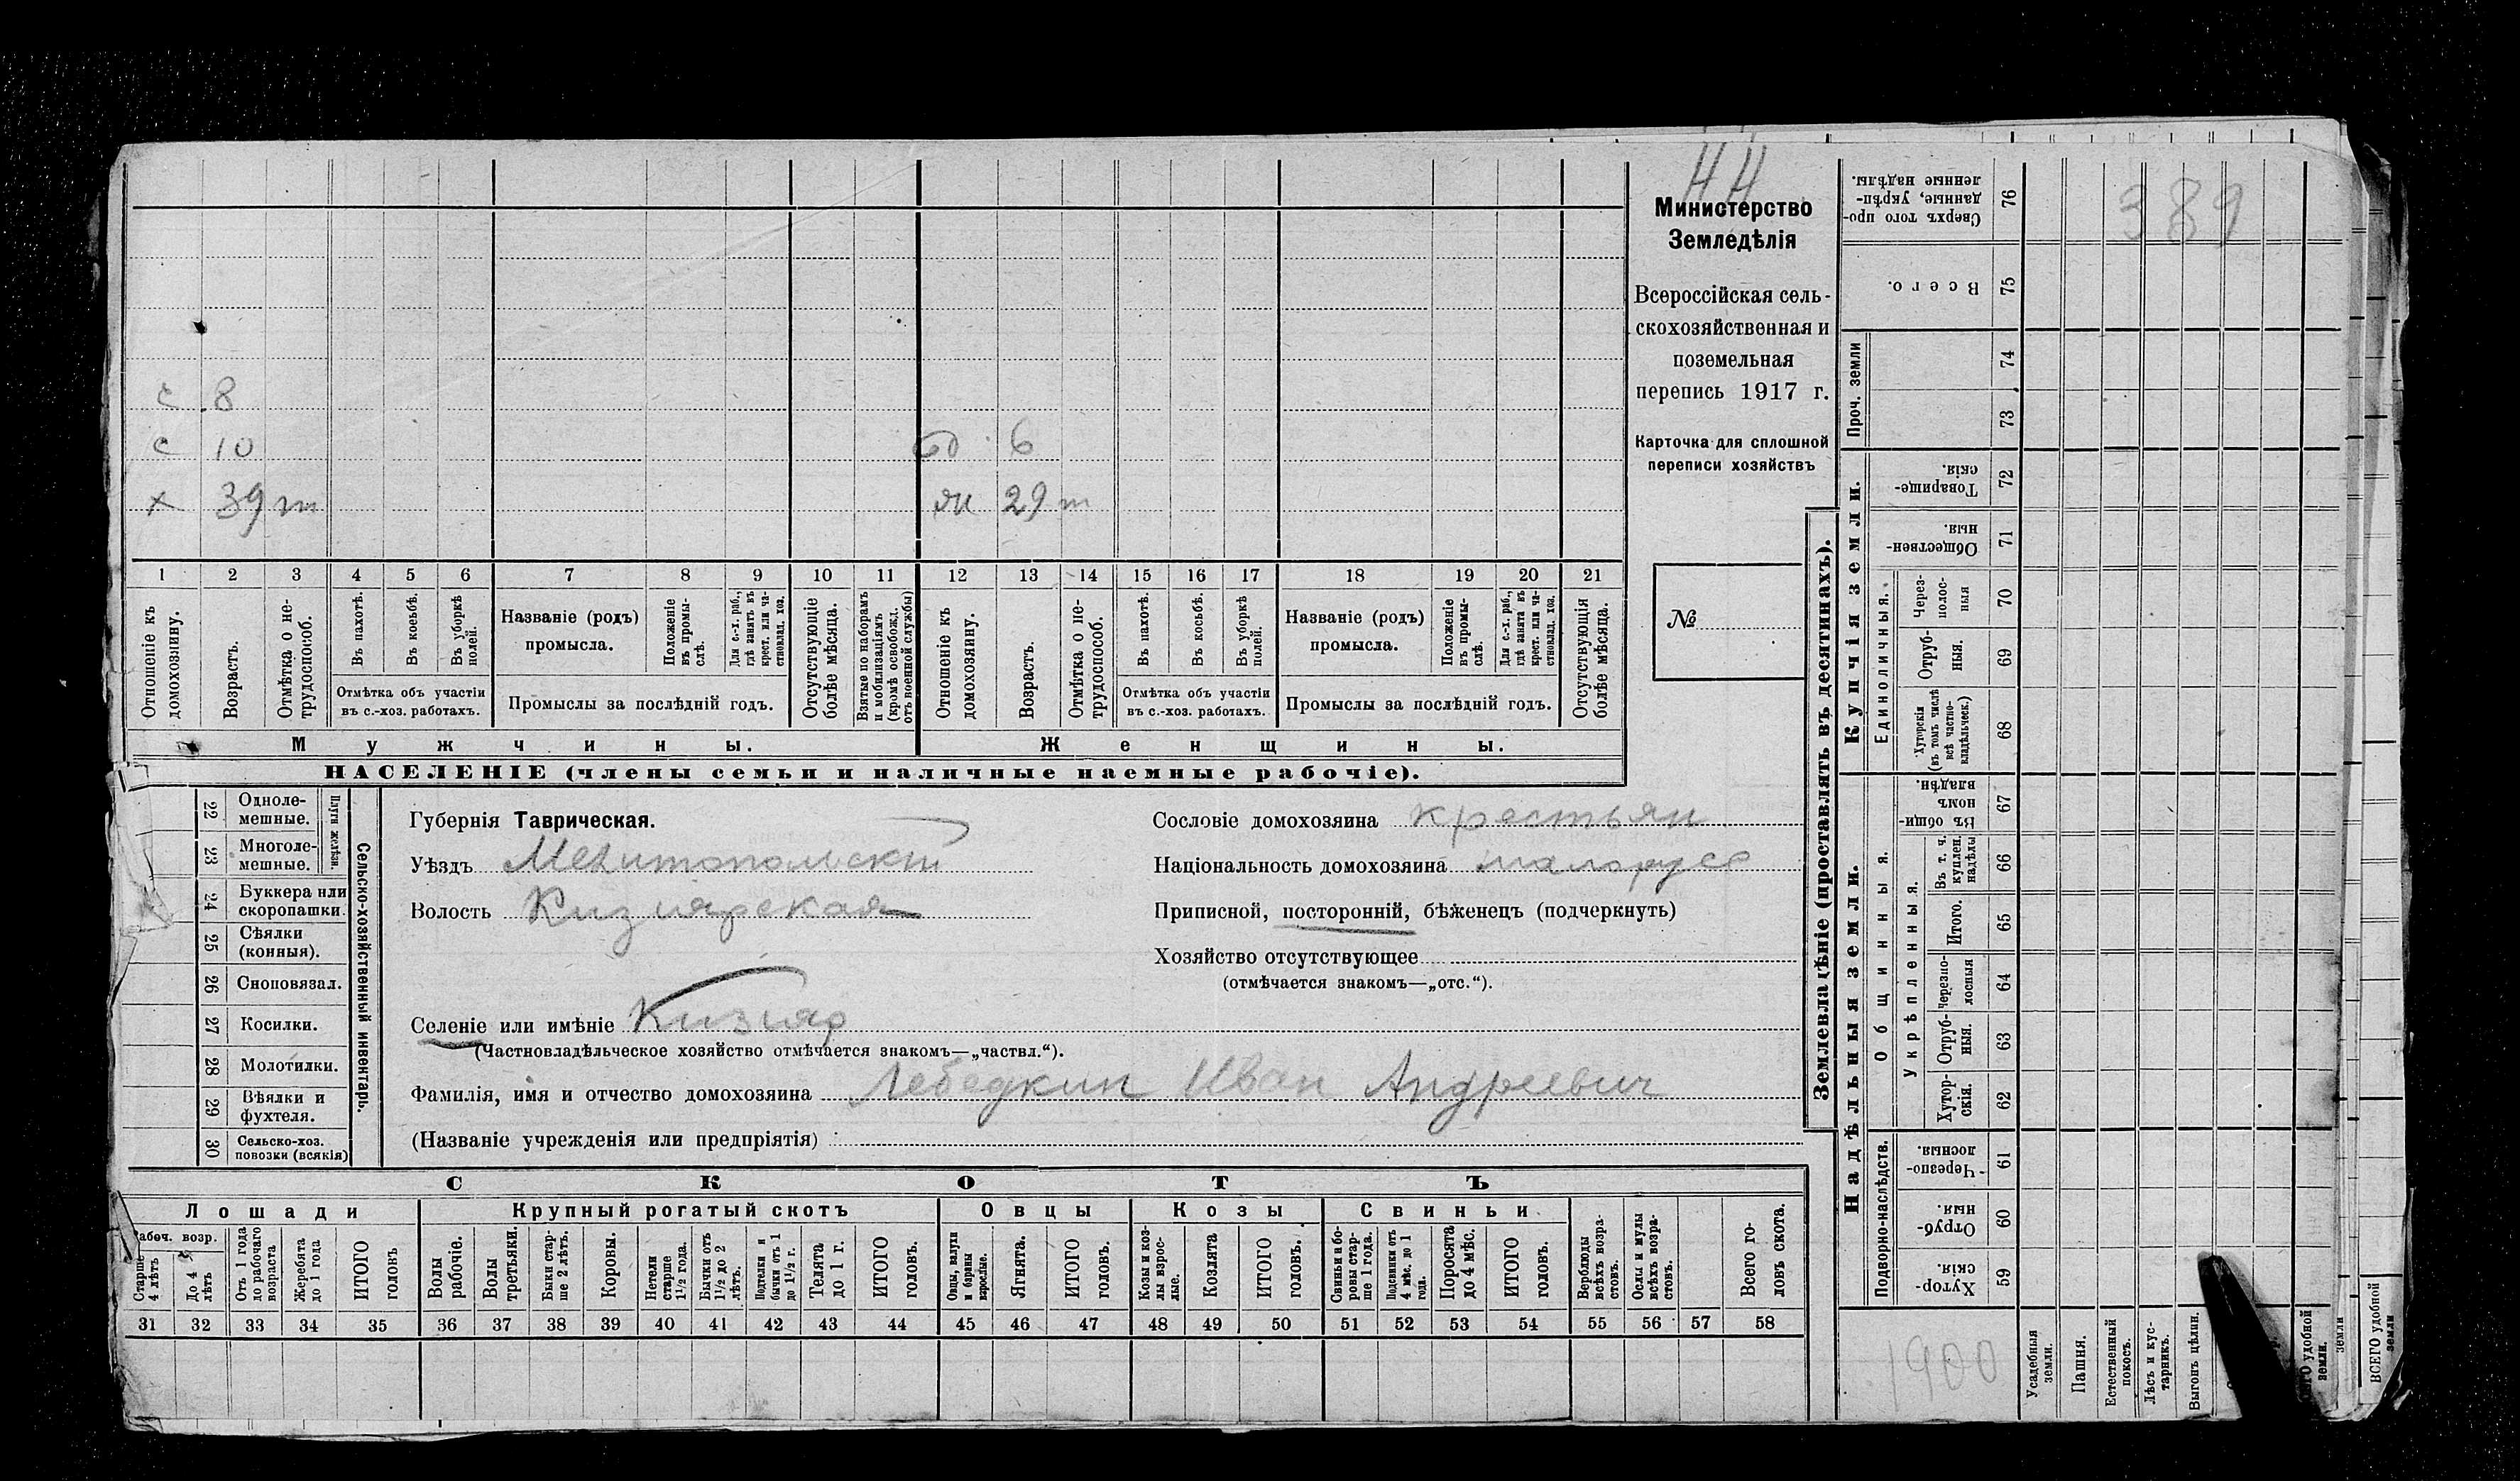 НН
389
Министерство
Земледѣлія
Всероссійская сель-
скохозяйственная и
поземельная
перепись 1917 г.
Карточка для сплошной
переписи хозяйствъ
№
с 8
с 10
х 39 т
6
ж 29 т
1 2 3 4 5 6 7 8 9 10 11 12 13 14 15 16 17 18 19 20 21
Отношеніе къ домохозяину.
Возрастъ.
Отмѣтка о не-трудоспособ.
Въ пахотѣ.
Въ косьбѣ.
Въ уборкѣ полей.
Отмѣтка объ участіи
въ с.-хоз. работахъ.
Названіе (родъ)
промысла.
Положеніе въ промы-слѣ.
Для с.-х. раб., гдѣ занятъ въ крест. или ча-стновлад. хоз.
Промыслы за послѣдній годъ.
Отсутствующіе болѣе мѣсяца.
Взятые по наборамъ и мобилизаціямъ (кромѣ освобожд. отъ военной службы)
Отношеніе къ домохозяину.
Возрастъ.
Отмѣтка о не-трудоспособ.
Въ пахотѣ.
Въ косьбѣ.
Въ уборкѣ полей.
Отмѣтка объ участіи
въ с.-хоз. работахъ.
Названіе (родъ)
промысла.
Положеніе въ промы-слѣ.
Для с.-х. раб., гдѣ занята въ крест. или ча-стновлад. хоз.
Промыслы за послѣдній годъ.
Отсутствующія болѣе мѣсяца.
Мужчины.
Женщины.
НАСЕЛЕНІЕ (члены семьи и наличные наемные рабочіе).
22 Одноле-мешные.
23 Многоле-мешные.
Плуги желѣзн.
24 Буккера или скоропашки.
25 Сѣялки (конныя).
26 Сноповязал.
27 Косилки.
28 Молотилки.
29 Вѣялки и фухтеля.
30 Сельско-хоз. повозки (всякія)
Сельско-хозяйственный инвентарь.
Губернія Таврическая.
Уѣздъ Мелитопольскій
Волость Кизиярская
Селеніе или имѣніе Кизияр
(Частновладѣльческое хозяйство отмѣчается знакомъ—„частвл.“).
Фамилія, имя и отчество домохозяина Лебедкин Иван Андреевич
(Названіе учрежденія или предпріятія)
Сословіе домохозяина крестьян.
Національность домохозяина малорусс
Приписной, посторонній, бѣженецъ (подчеркнуть)
Хозяйство отсутствующее
(отмѣчается знакомъ—„отс.“).
СКОТЪ
Лошади
Крупный рогатый скотъ
Овцы
Козы
Свиньи
Рабоч. возр.
Старше 4 лѣтъ
До 4 лѣтъ
Отъ 1 года до рабочаго возраста
Жеребята до 1 года
ИТОГО головъ
Волы рабочіе.
Волы третьяки.
Быки стар-ше 2 лѣтъ.
Коровы.
Нетели старше 1½ года.
Бычки отъ 1½ до 2 лѣтъ.
Подтелки и бычки отъ 1 до 1½ г.
Телята до 1 г.
ИТОГО головъ.
Овцы, валухи и бараны взрослые.
Ягнята.
ИТОГО головъ.
Козы и коз-лы взрос-лые.
Козлята
ИТОГО головъ.
Свиньи и бо-ровы стар-ше 1 года.
Подсвинки отъ 4 мѣс. до 1 года.
Поросята до 4 мѣс.
ИТОГО головъ.
Верблюды всѣхъ возра-стовъ.
Ослы и мулы всѣхъ возра-стовъ.
Всего го-ловъ скота.
31 32 33 34 35 36 37 38 39 40 41 42 43 44 45 46 47 48 49 50 51 52 53 54 55 56 57 58
Землевладѣніе (проставлять въ десятинахъ).
Сверхъ того про-данные, укрѣп-ленные надѣлы. 76
Всего. 75
Проч. земли
74
73
Купчія земли.
Товарище-скія. 72
Обществен-ныя. 71
Единоличныя.
Через-полос-ныя 70
Отруб-ныя. 69
Хуторскія (въ томъ числѣ всѣ частно-владѣльческ.) 68
Надѣльныя земли.
Общинныя.
Въ общи-номъ владѣн. 67
Укрѣпленныя.
Въ т. ч. куплен. надѣлы 66
Итого. 65
Черезпо-лосныя 64
Отруб-ныя. 63
Хутор-скія. 62
Подворно-наслѣдств.
Черезпо-лосныя. 61
Отруб-ныя. 60
Хутор-скія. 59
1900
Усадебныя земли.
Пашня.
Естественный покосъ.
Лѣсъ и кус-тарникъ.
Выгонъ цѣлин.
удобной земли.
земли
ВСЕГО удобной земли